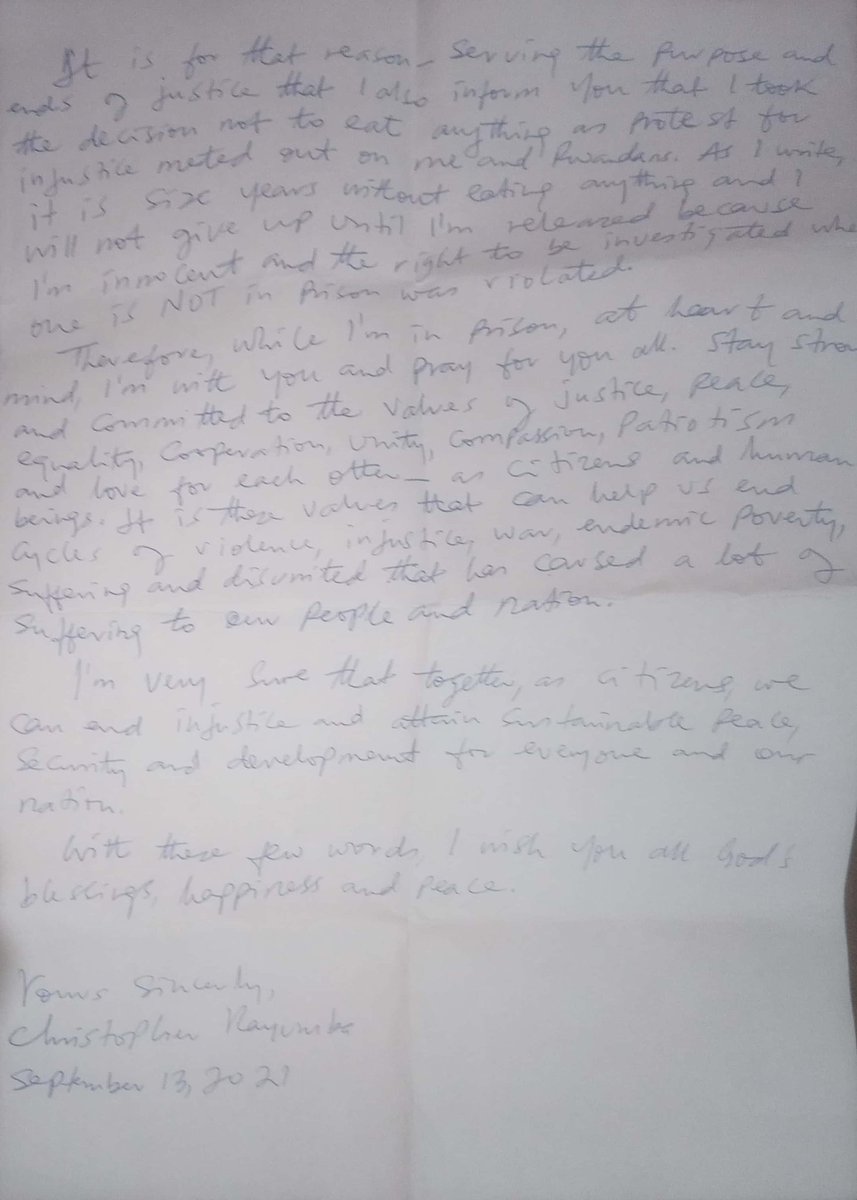 It is for that reason - serving the purpose and
ends of justice that I also inform you that I took
the decision not to eat anything as protest for
injustice meted out on me and Rwandans. As I write,
it is size years without eating anything and I
will not give up until I'm released because
I'm innocent and the right to be investigated whe
one is NOT in prison was violated.
Therefore, while I'm in prison, at heart and
mind, I'm with you and pray for you all. Stay stron
and committed to the values of justice, peace,
equality, cooperation, unity, compassion, patriotism
and love for each other - as citizens and human
beings. It is these values that can help us end
cycles of violence, injustice, war, endemic poverty,
suffering and disunited that has caused a lot of
suffering to our people and nation.
I'm very sure that together, as citizens, we
can end injustice and attain sustainable peace,
security and development for everyone and our
nation.
With these few words, I wish you all God's
blessings, happiness and peace.
Yours sincerly,
Christopher Kayumba
September 13, 2021